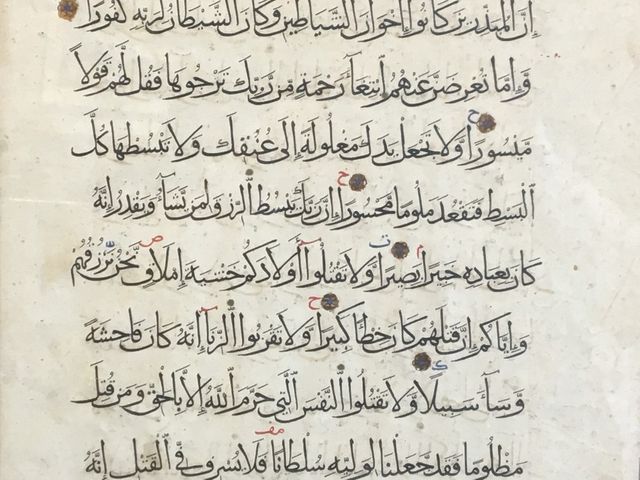 إِنَّ ٱلْمُبَذِّرِينَ كَانُوٓا۟ إِخْوَٰنَ ٱلشَّيَٰطِينِ وَكَانَ ٱلشَّيْطَٰنُ لِرَبِّهِۦ كَفُورًا
وَإِمَّا تُعْرِضَنَّ عَنْهُمُ ٱبْتِغَآءَ رَحْمَةٍ مِّن رَّبِّكَ تَرْجُوهَا فَقُل لَّهُمْ قَوْلًا
مَّيْسُورًا وَلَا تَجْعَلْ يَدَكَ مَغْلُولَةً إِلَىٰ عُنُقِكَ وَلَا تَبْسُطْهَا كُلَّ
ٱلْبَسْطِ فَتَقْعُدَ مَلُومًا مَّحْسُورًا إِنَّ رَبَّكَ يَبْسُطُ ٱلرِّزْقَ لِمَن يَشَآءُ وَيَقْدِرُ إِنَّهُ
كَانَ بِعِبَادِهِ خَبِيرًا بَصِيرًا وَلَا تَقْتُلُوٓا۟ أَوْلَادَكُمْ خَشْيَةَ إِمْلَاقٍ نَّحْنُ نَرْزُقُهُمْ
وَإِيَّاكُمْ إِنَّ قَتْلَهُمْ كَانَ خِطْـًٔا كَبِيرًا وَلَا تَقْرَبُوا۟ ٱلزِّنَآ إِنَّهُ كَانَ فَاحِشَةً
وَسَآءَ سَبِيلًا وَلَا تَقْتُلُوا۟ ٱلنَّفْسَ ٱلَّتِي حَرَّمَ ٱللَّهُ إِلَّا بِٱلْحَقِّ وَمَن قُتِلَ
مَظْلُومًا فَقَدْ جَعَلْنَا لِوَلِيِّهِ سُلْطَانًا فَلَا يُسْرِف فِّي ٱلْقَتْلِ إِنَّهُ